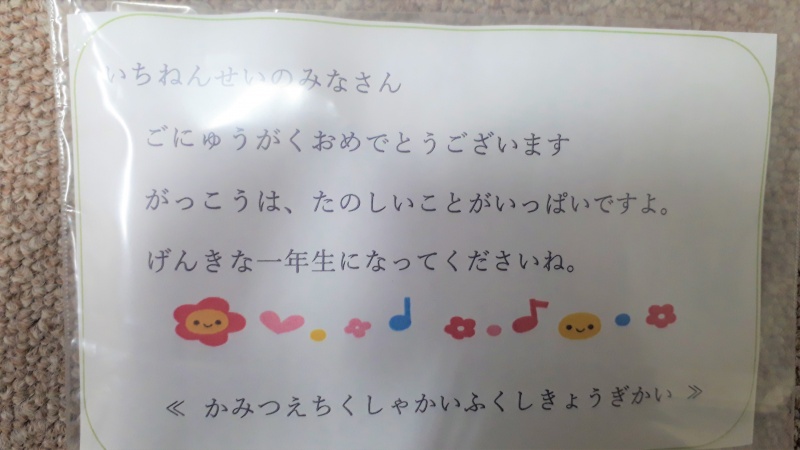 いちねんせいのみなさん
ごにゅうがくおめでとうございます
がっこうは、たのしいことがいっぱいですよ。
げんきな一年生になってくださいね。
≪ かみつえちくしゃかいふくしきょうぎかい ≫